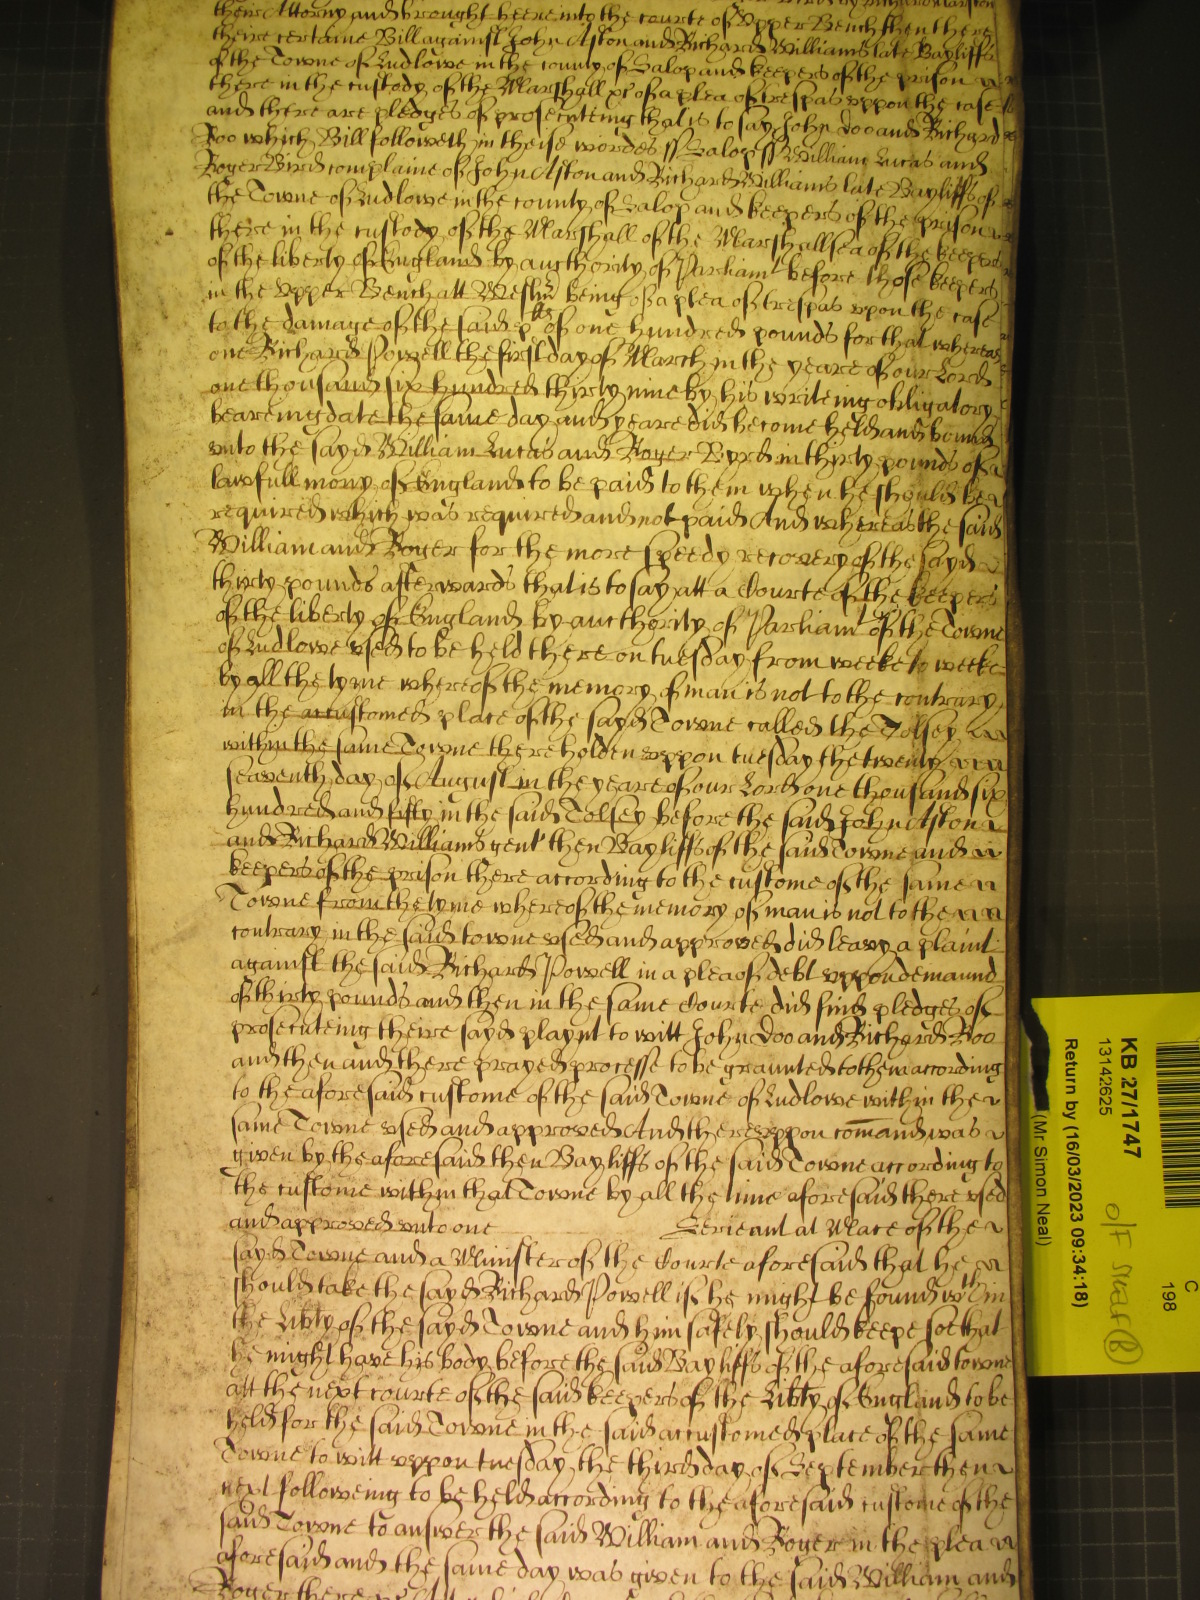 their Attorny and brought here into the courte of Upper Bench then there
theire certaine Bill against John Aston and Richard Williams late Bayliffs
of the Towne of Ludlowe in the county of Salop and keepers of the prison
there in the custody of the Marshall &c of a plea of trespas uppon the case
and there are pledges of prosecuteing that is to say John Doo and Richard
Roo which Bill followeth in theise wordes ss Salop ss William Lucas and
Roger Bird complaine of John Aston and Richard Williams late Bayliffs of
the Towne of Ludlowe in the county of Salop and keepers of the prison
there in the custody of the Marshall of the Marshallsea of the keepers
of the liberty of England by authority of Parliamt before those keepers
in the Upper Bench att Westm being of a plea of trespas upon the case
to the damage of the said plts of one hundred pounds for that whereas
one Richard Powell the first day of March in the yeare of our Lord
one thousand six hundred thirty nine by his writeing obligatory
beareing date the same day and yeare did become held and bound
unto the sayd William Lucas and Roger Byrd in thirty pounds of
lawfull mony of England to be paid to them when he should be
required which was required and not paid And whereas the said
William and Roger for the more speedy recovery of the sayd
thirty pounds afterwards that is to say att a Courte of the keepers
of the liberty of England by aucthority of Parliamt of the Towne
of Ludlowe used to be held there on tuesday from weeke to weeke
by all the tyme whereof the memory of man is not to the contrary
in the accustomed place of the sayd Towne called the Tolsey
within the same Towne there holden uppon tuesday the twenty
seaventh day of August in the yeare of our Lord one thousand six
hundred and fifty in the said Tolsey before the said John Aston
and Richard Williams gent then Bayliffs of the said Towne and
keepers of the prison there according to the custome of the same
Towne from the tyme whereof the memory of man is not to the
contrary in the said towne used and approved did leavy a plaint
against the said Richard Powell in a plea of debt uppon demaund
of thirty pounds and then in the same Courte did find pledges of
prosecuteing theire sayd playnt to witt John Doo and Richard Roo
and then and there prayed processe to be graunted to them according
to the aforesaid custome of the said Towne of Ludlowe within the
same Towne used and approved And thereuppon comand was
given by the aforesaid then Bayliffs of the said Towne according to
the custome within that Towne by all the time aforesaid there used
and approved unto one Serieant at Mace of the
sayd Towne and a Minister of the Courte aforesaid that he
should take the sayd Richard Powell if he might be found wthin
the Libty of the sayd Towne and him safely should keepe soe that
he might have his body before the said Bayliffs of the aforesaid towne
att the next courte of the said keepers of the Libty of England to be
held for the said Towne in the said accustomed place of the same
Towne to witt uppon tuesday the third day of September then
next followeing to be held according to the aforesaid custome of the
said Towne to answer the said William and Roger in the plea
aforesaid and the same day was given to the said William and
Roger there
KB 27/1747
13142625
Return by (16/03/2023 09:34:18)
(Mr Simon Neal)
C
198